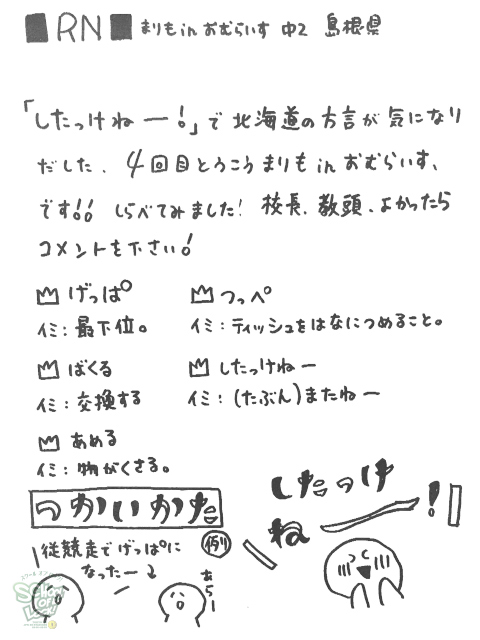 ■RN■ まりもinおむらいす 中2 島根県
「したっけねー!」で北海道の方言が気になり
だした、4回目とうこうまりもinおむらいす、
です!! しらべてみました! 校長、教頭、よかったら
コメントを下さい!
げっぱ°
イミ:最下位。
つっぺ
イミ:ティッシュをはなにつめること。
ばくる
イミ:交換する
したっけねー
イミ:(たぶん)またねー
あめる
イミ:物がくさる。
つかいかた
例
徒競走でげっぱ°に
なったー
あらー
したっけ
ねー!